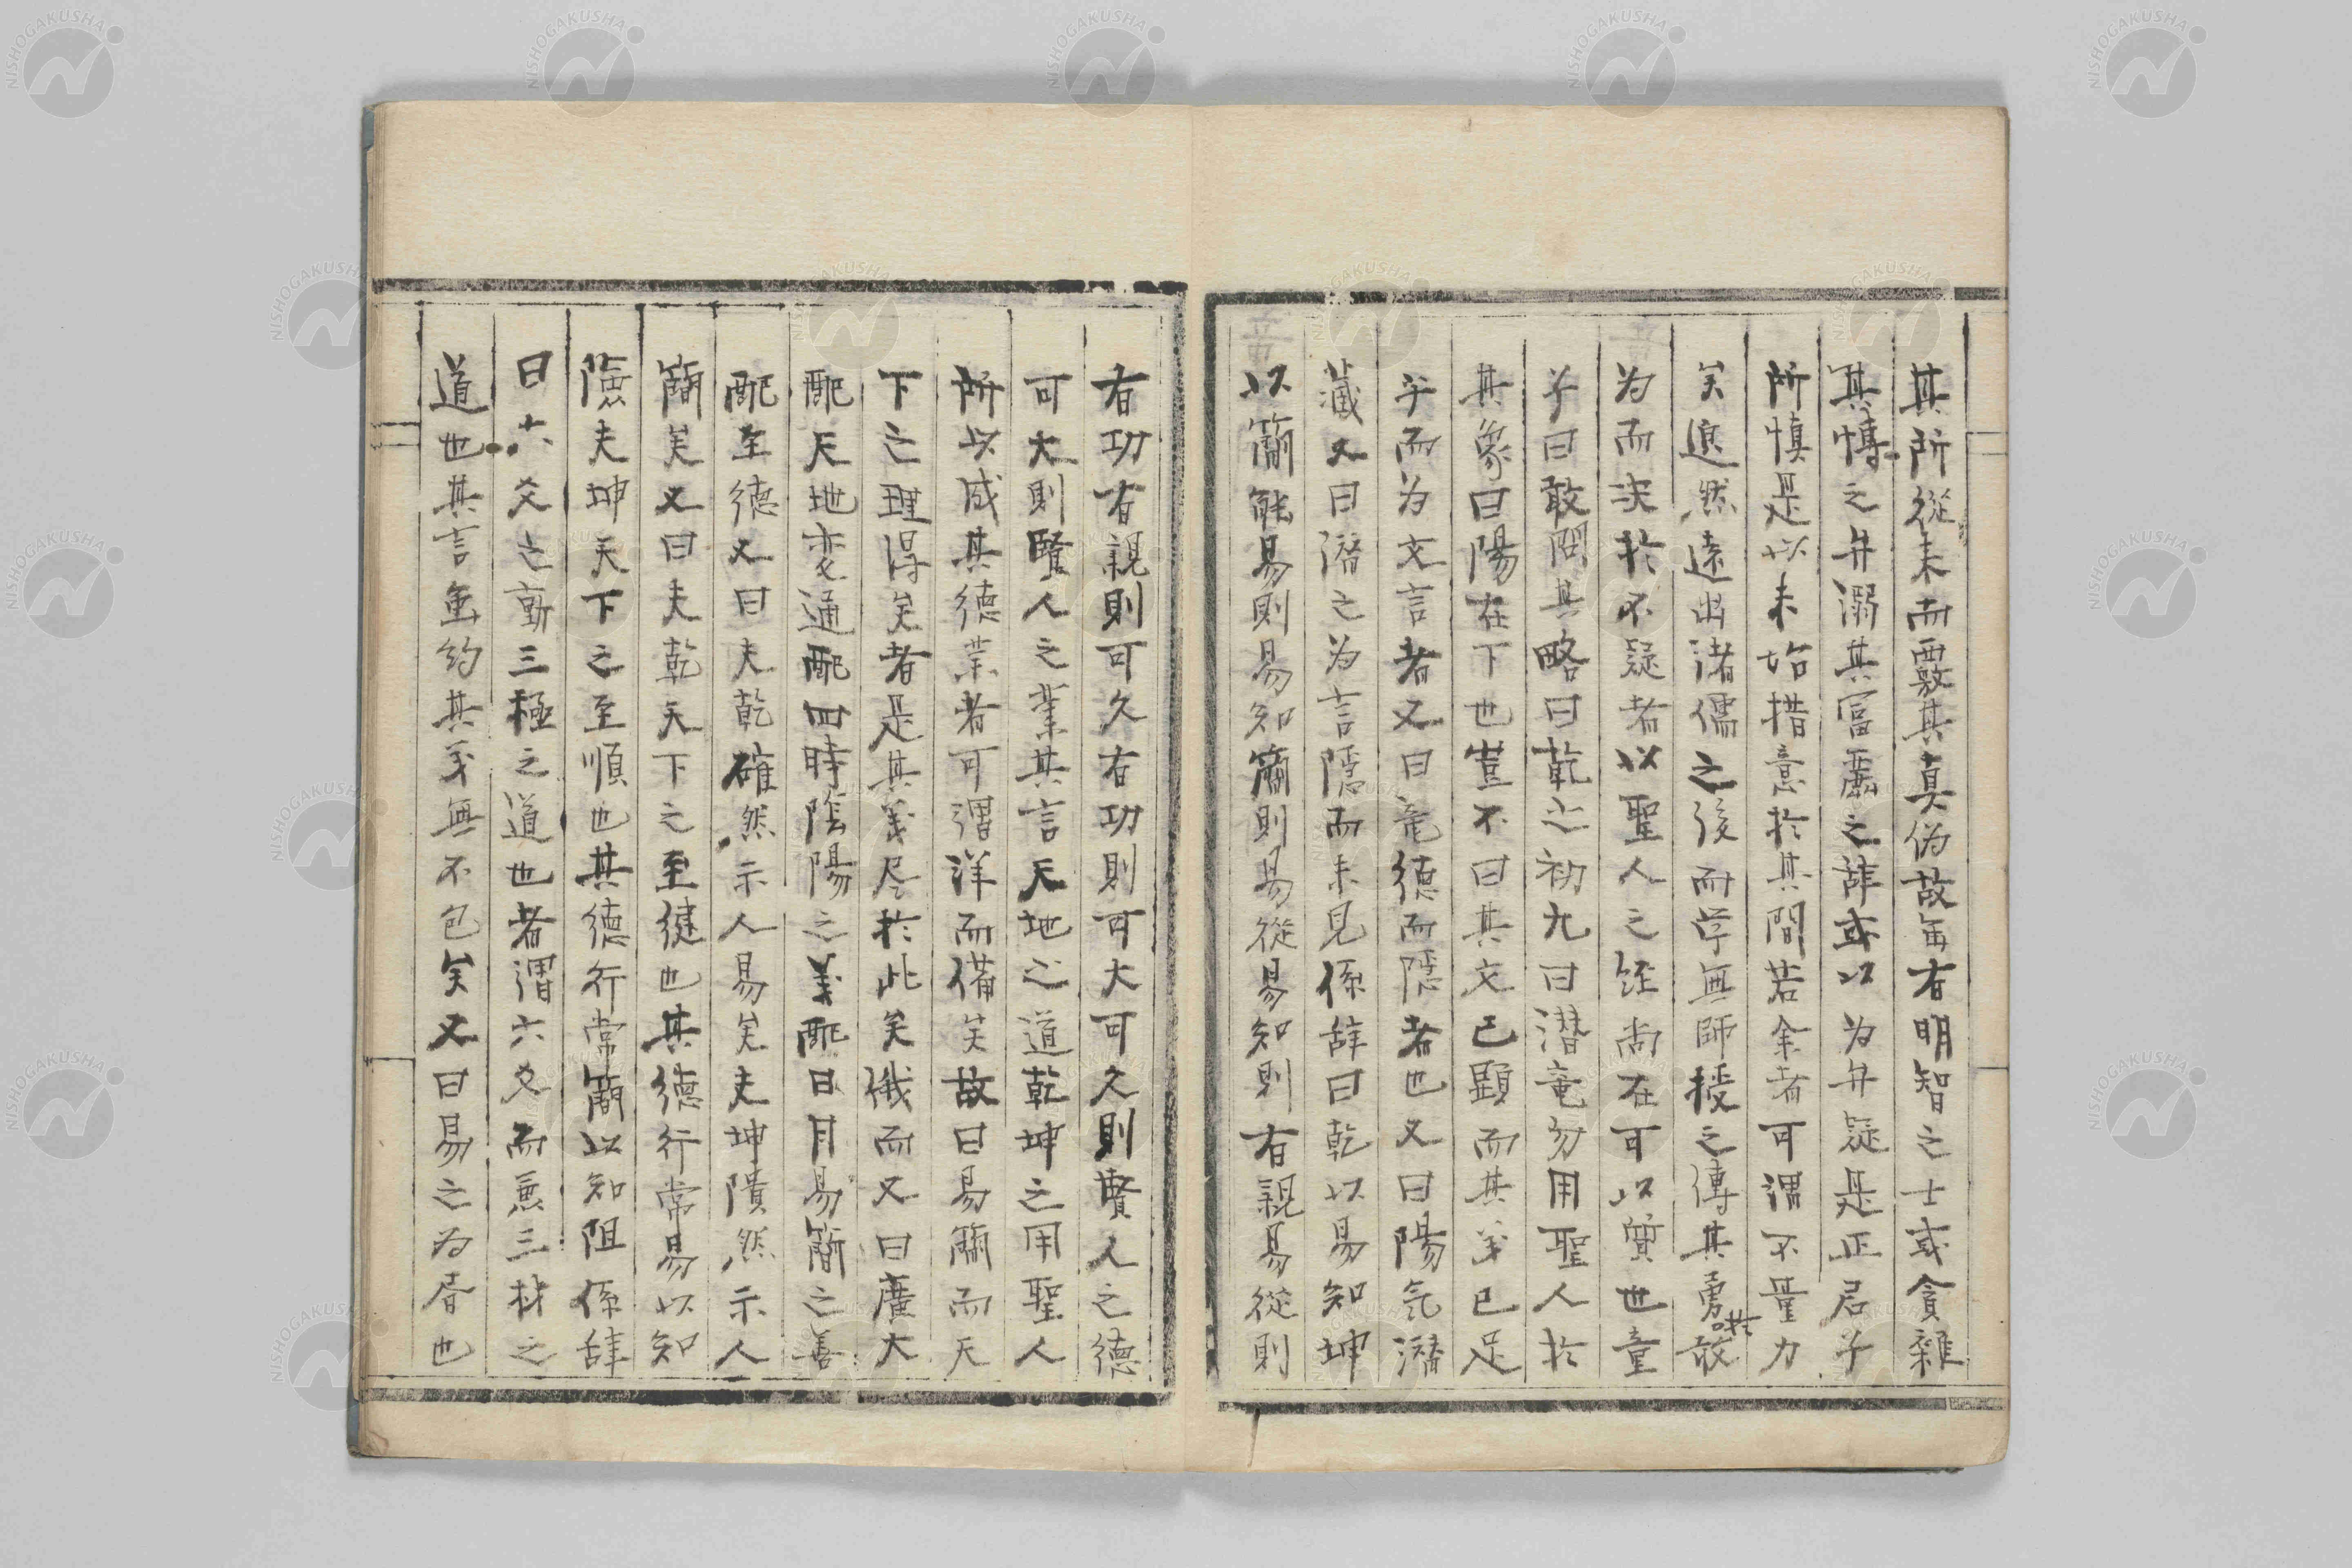 其所從来而覈其真偽故毎有明智之士或貪雜
其慱之弁溺其富麗之辞或以为弁疑是正君子
所慎是以未始措意於其間若余者可謂不量力
矣邈然遠出諸儒之後而学無師授之傳其勇於敢
为而决於不疑者以聖人之経尚在可以質也童
子曰敢問其略曰乾之初九曰潜竜勿用聖人於
其象曰陽在下也豈不曰其文已顕而其义已足
乎而为文言者又曰竜德而隠者也又曰陽気潜
藏又曰潜之为言隠而未見係辞曰乾以易知坤
以簡能易則易知簡則易從易知則有親易從則
有功有親則可久有功則可大可久則賢人之德
可大則賢人之業其言天地之道乾坤之用聖人
所以成其德業者可謂洋而備矣故曰易簡而天
下之理得矣者是其義尽於此矣俄而又曰廣大
配天地変通配四時陰陽之義配日月易簡之善
配至德又曰夫乾確然示人易矣夫坤隤然示人
簡矣又曰夫乾天下之至健也其德行常易以知
險夫坤天下之至順也其德行常簡以知阻係辞
曰六爻之動三極之道也者謂六爻而兼三材之
道也其言虽約其义無不包矣又曰易之为書也
NISHOGAKUSHA